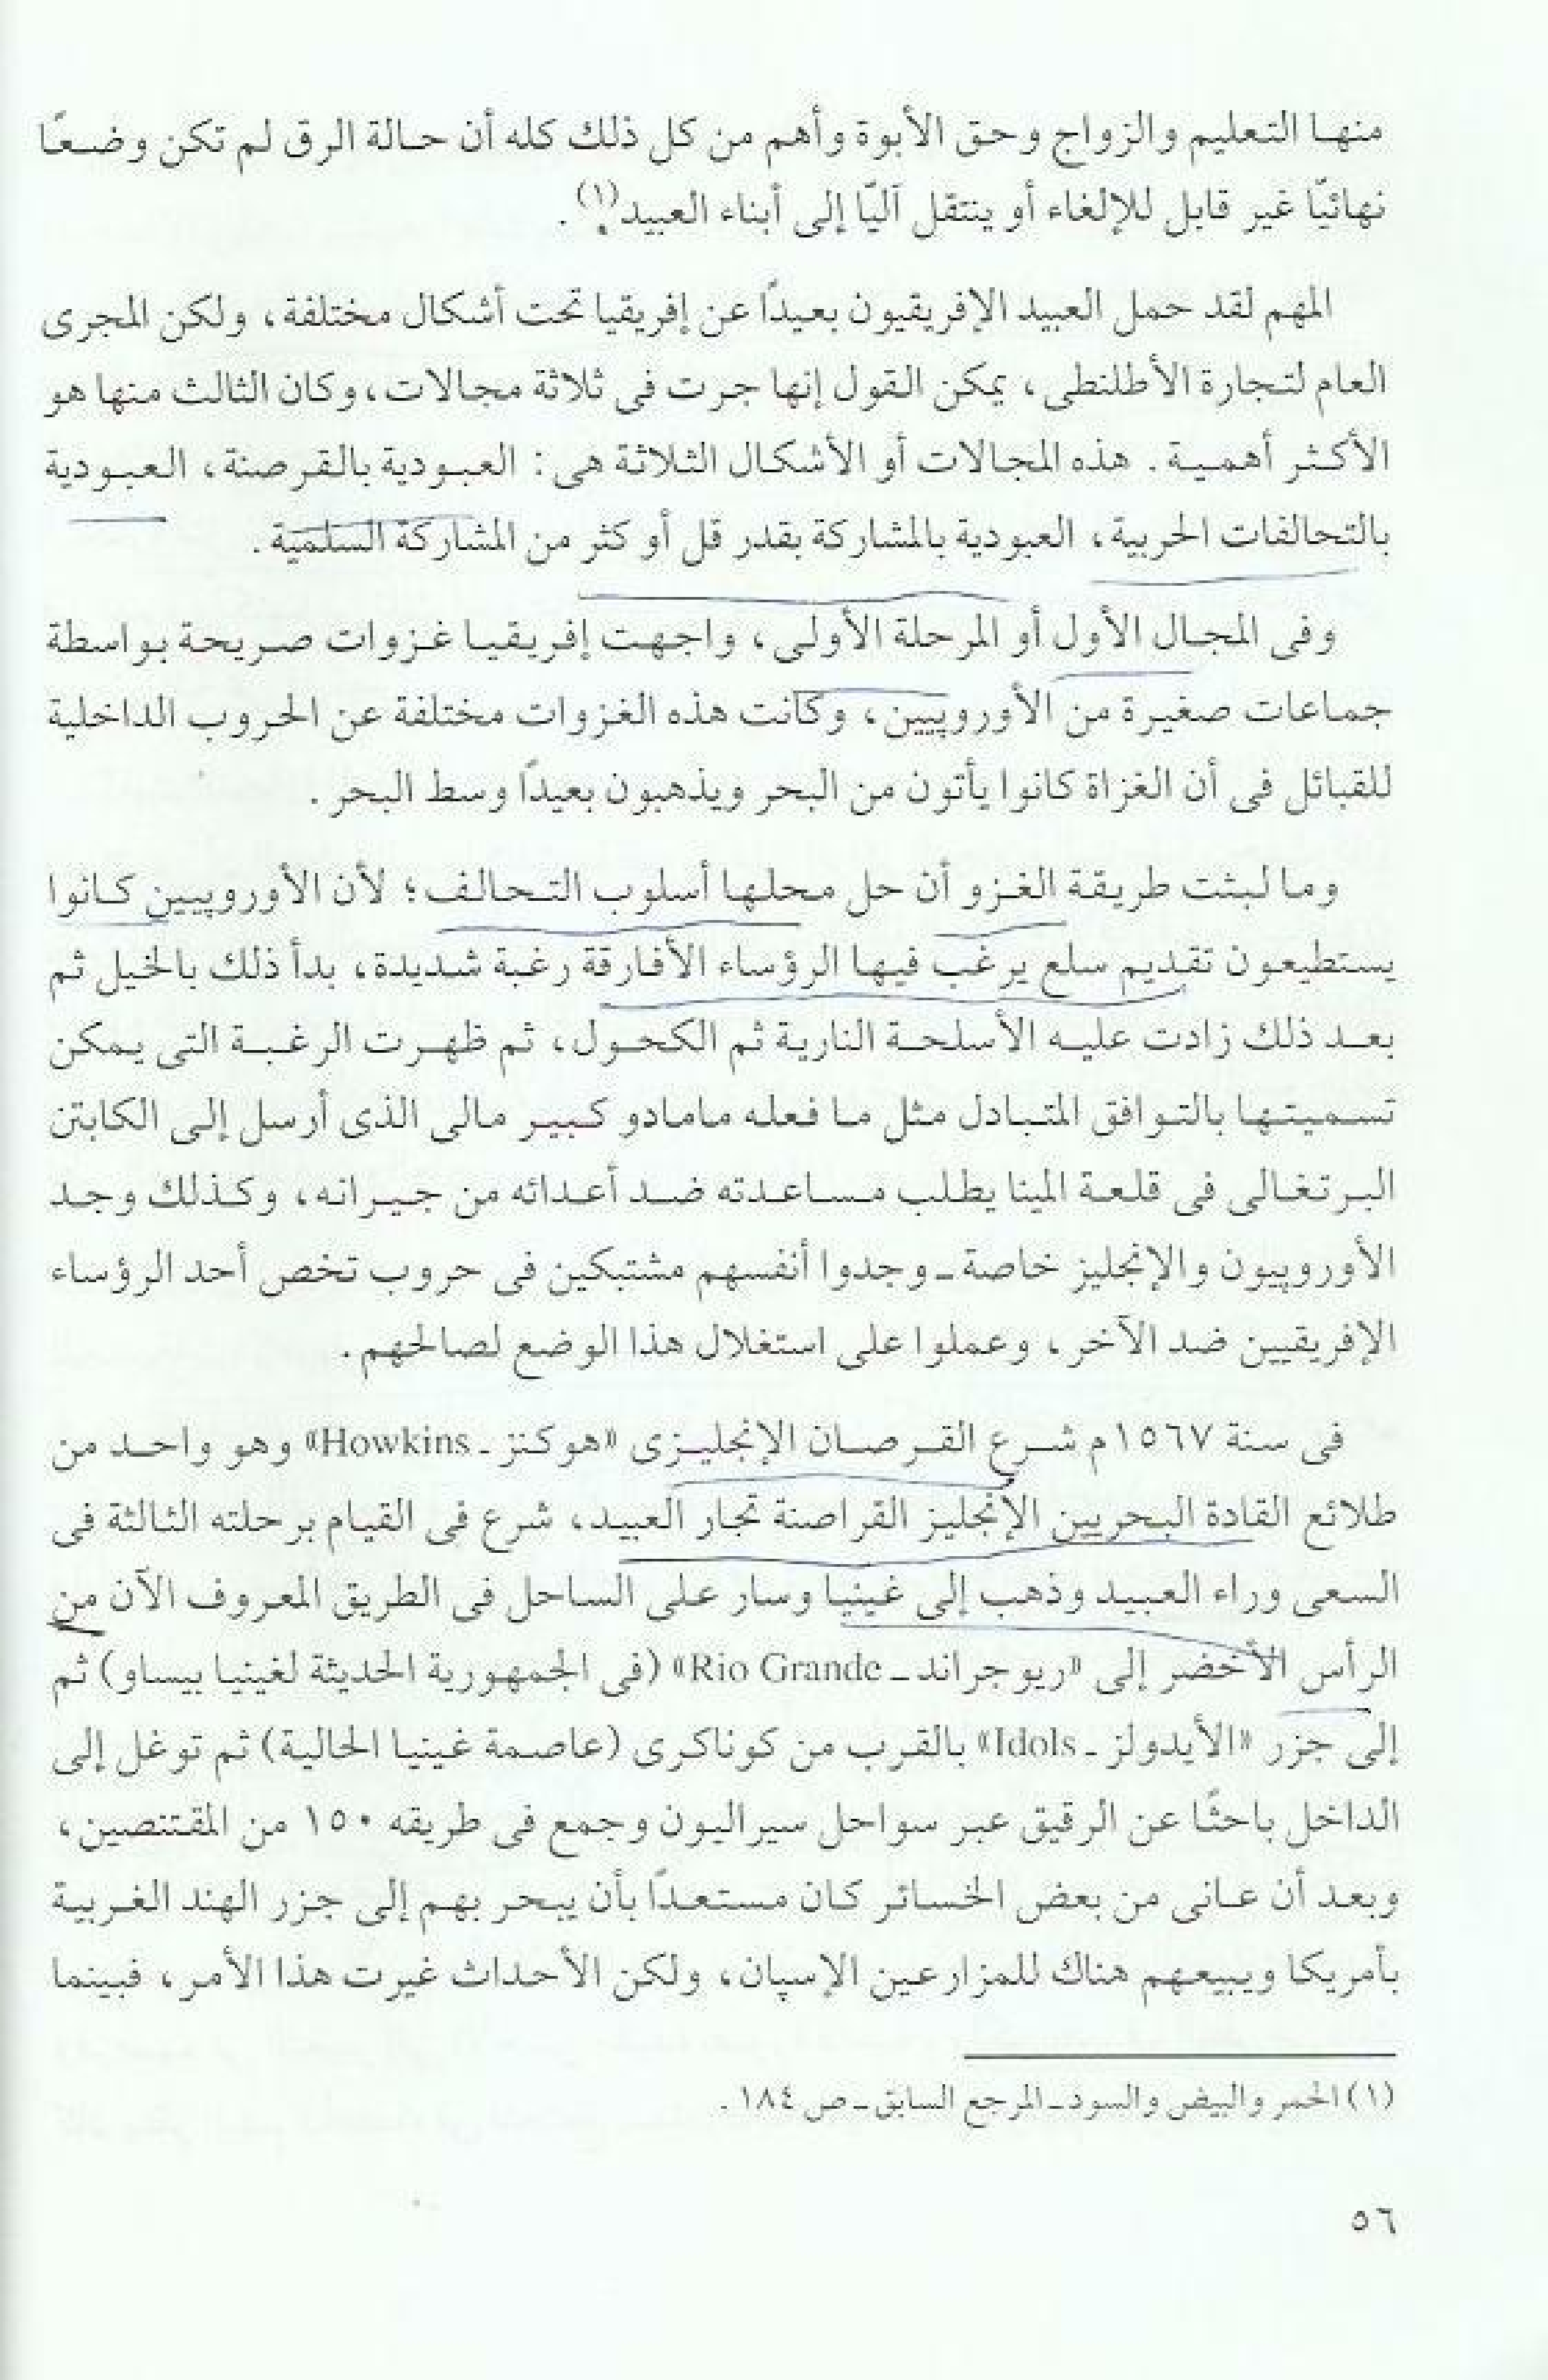 منها التعليم والزواج وحق الأبوة وأهم من كل ذلك كله أن حالة الرق لم تكن وضعًا
نهائيّا غير قابل للإلغاء أو ينتقل آليّا إلى أبناء العبيد(١).
المهم لقد حمل العبيد الإفريقيون بعيدًا عن إفريقيا تحت أشكال مختلفة، ولكن المجرى
العام لتجارة الأطلنطى، يمكن القول إنها جرت فى ثلاثة مجالات، وكان الثالث منها هو
الأكثر أهمية. هذه المجالات أو الأشكال الثلاثة هى: العبودية بالقرصنة، العبودية
بالتحالفات الحربية، العبودية بالمشاركة بقدر قل أو كثر من المشاركة السلمية.
وفى المجال الأول أو المرحلة الأولى، واجهت إفريقيا غزوات صريحة بواسطة
جماعات صغيرة من الأوروپيين، وكانت هذه الغزوات مختلفة عن الحروب الداخلية
للقبائل فى أن الغزاة كانوا يأتون من البحر ويذهبون بعيدًا وسط البحر.
وما لبثت طريقة الغزو أن حل محلها أسلوب التحالف؛ لأن الأوروپيين كانوا
يستطيعون تقديم سلع يرغب فيها الرؤساء الأفارقة رغبة شديدة، بدأ ذلك بالخيل ثم
بعد ذلك زادت عليه الأسلحة النارية ثم الكحول، ثم ظهرت الرغبة التى يمكن
تسميتها بالتوافق المتبادل مثل ما فعله مامادو كبير مالى الذى أرسل إلى الكابتن
البرتغالى فى قلعة المينا يطلب مساعدته ضد أعدائه من جيرانه، وكذلك وجد
الأوروپيون والإنجليز خاصة ـ وجدوا أنفسهم مشتبكين فى حروب تخص أحد الرؤساء
الإفريقيين ضد الآخر، وعملوا على استغلال هذا الوضع لصالحهم.
فى سنة ١٥٦٧م شرع القرصان الإنجليزى «هوكنز ـ Howkins» وهو واحد من
طلائع القادة البحريين الإنجليز القراصنة تجار العبيد، شرع فى القيام برحلته الثالثة فى
السعى وراء العبيد وذهب إلى غينيا وسار على الساحل فى الطريق المعروف الآن من
الرأس الأخضر إلى «ريو جراند ـ Rio Grande» (فى الجمهورية الحديثة لغينيا بيساو) ثم
إلى جزر «الأيدولز ـ Idols» بالقرب من كوناكرى (عاصمة غينيا الحالية) ثم توغل إلى
الداخل باحثًا عن الرقيق عبر سواحل سيراليون وجمع فى طريقه ١٥٠ من المقتنصين،
وبعد أن عانى من بعض الخسائر كان مستعدًا بأن يبحر بهم إلى جزر الهند الغربية
بأمريكا ويبيعهم هناك للمزارعين الإسپان، ولكن الأحداث غيرت هذا الأمر، فبينما
(١) الحمر والبيض والسود ـ المرجع السابق ـ ص ١٨٤.
٥٦